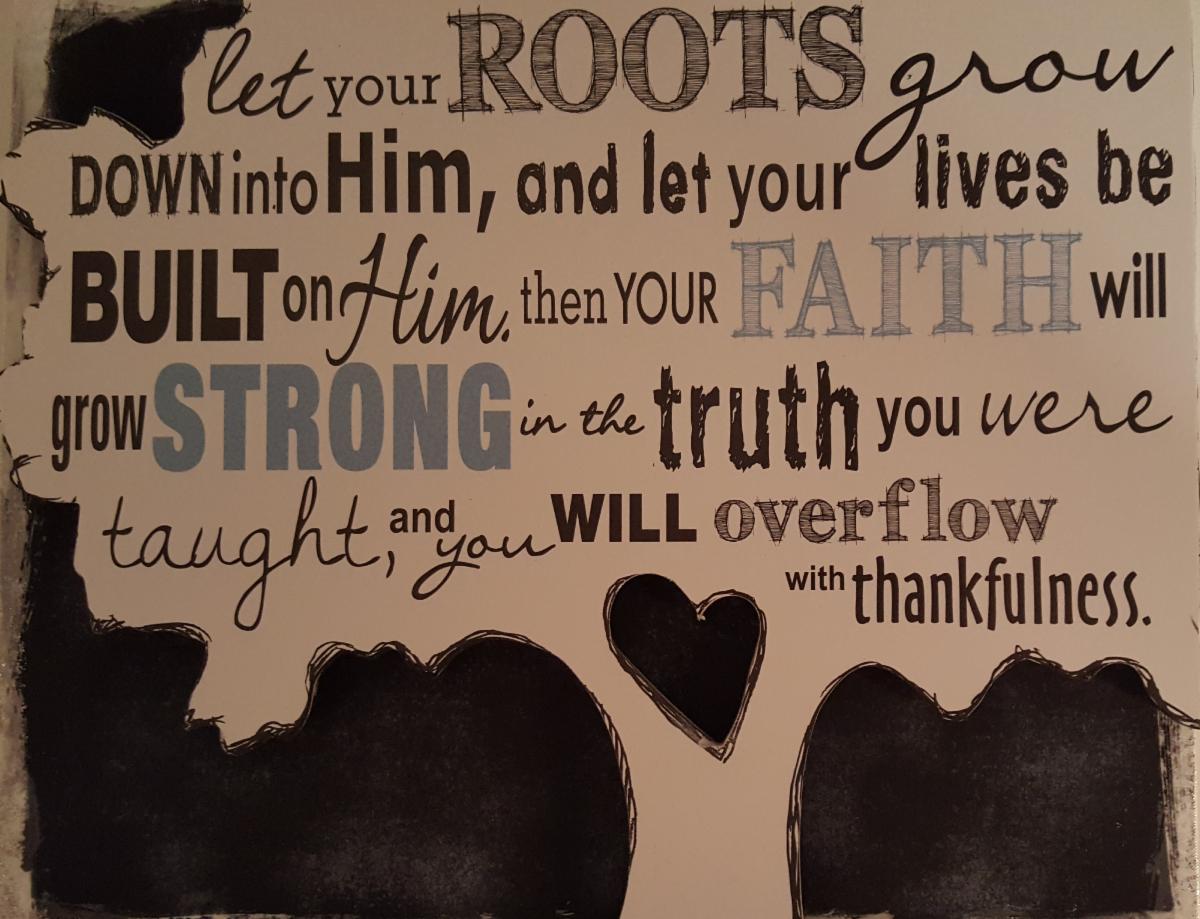 let your ROOTS grow
DOWN into Him, and let your lives be
BUILT on Him. then YOUR FAITH will
grow STRONG in the truth you were
taught, and you WILL overflow
with thankfulness.